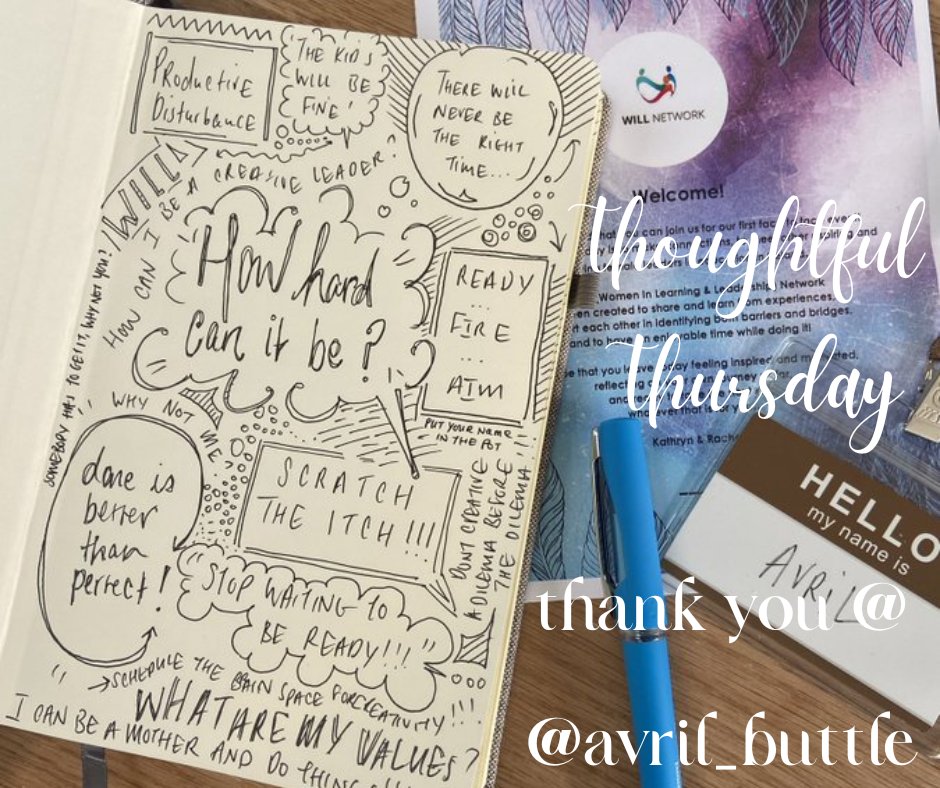 PRODUCTIVE
DISTURBANCE
THE KIDS
WILL BE
FINE!
THERE WILL
NEVER BE
THE RIGHT
TIME...
WILL
HOW CAN I BE A CREATIVE LEADER?
How hard
can it be?
READY
...
FIRE
...
AIM
PUT YOUR NAME
IN THE POT
SOMEBODY HAS TO GET IT, WHY NOT YOU?
WHY NOT ME?
done is
better
than
perfect!
SCRATCH
THE ITCH!!!
DONT CREATIVE
A DILEMA BEFORE
THE DILEMA!!!
"STOP WAITING TO
BE READY!!!"
SCHEDULE THE BRAIN SPACE FOR CREATIVITY!!!
WHAT ARE MY VALUES?
I CAN BE A MOTHER AND DO
WILL NETWORK
Welcome!
can join us for our first
Women in Learning & Leadership Network
created to share and learn from experiences.
each other in identifying both barriers and bridges.
and to have an enjoyable time while doing it!
that you leave today feeling inspired and motivated,
Kathryn &
HELLO
my name is
AVRIL
thoughtful
thursday
thank you @
@avril_buttle